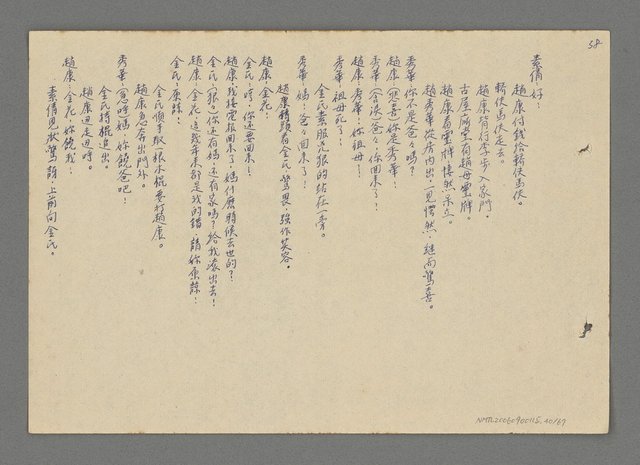 58
素倩：好：
趙康付錢給轎伕馬伕。
轎伕馬伕走去。
趙康背付李步入家門。
古屋厛堂有趙母靈牌。
趙康看靈牌悽然呆立。
趙秀華從房內出，一見愕然，繼而驚喜。
秀華：你不是爸々嗎？
趙康：（悲喜）你是秀華！
秀華：（含淚）爸々，你回來了！
趙康：秀華，妳祖母！
秀華：祖母死了！
金氏素服，兇狠的站在一旁。
秀華：媽，爸々回來了！
趙康轉頭看金氏，驚畏，強作笑容。
趙康：金花：
金氏：哼，你還要回來！
趙康：我接電報回來了，媽什麼時候去世的？
金氏：（狠々）你還有媽，还有家嗎？給我滚出去！
趙康：金花，這幾年來都是我的錯，請妳原諒：
金氏：原諒：
金氏順手取一根木棍要打趙康。
趙康急奔出門外。
秀華：（急呼）媽，妳饒爸吧！
金氏持棍追出。
趙康迎走迎呼。
趙康：金花，妳饒我！
素倩見狀驚訝，上前向金氏。
NMTL20060900115.40/67